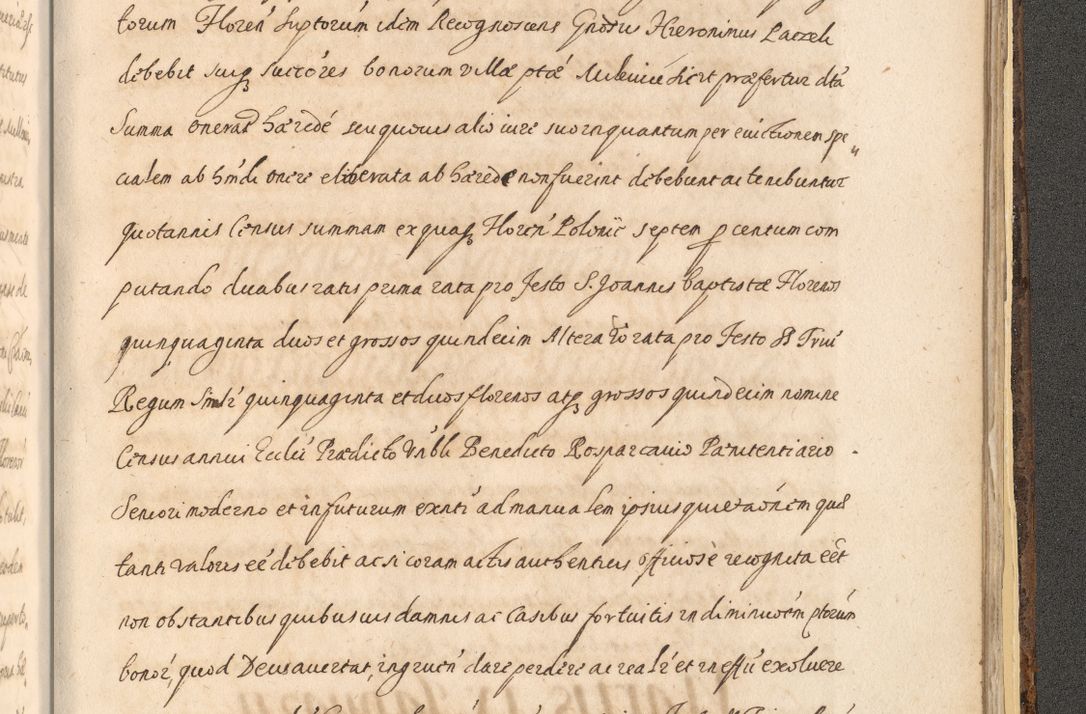 torum Floren̅ suptorum idem Recognoscens Gnosus Hieronimus Laczek
debebit suiq₃ succores bonorum villæ ptæ sicut præfertur dtâ
Summa onerat hærede seu quouis alio iure suo inquantum per euictionem spe„
cialem ab hm̅di onere eliberata ab hærede non fuerint debebunt ac tenebuntur
quotannis Census summam ex quaq₃ Floren̅ Polonic septem p centum com
putando duabus ratis prima rata pro festo S. Joannis baptistæ Florenos
quinquaginta duos et grossos quindecim Altera vo rata pro Festo SS Triu̅
Regum Simlr quinquaginta et duos florenos atq₃ grossos quindecim nomine
Census annui Eccli̅ Prædicto Vn̅bli Benedicto Rosparcauio Pænitentiario
Seniori moderno et in futurum exnti̅ ad manualem ipsius quietaōnem quæ
tanti valoris eē debebit ac si coram actis authenticis officiose recognita eēt
non obstantibus quibusuis damnis ac Casibus fortuitis in diminuōem ptorum
bonor̅, quod Deus auertat, ingruen̅ dare perdere ac realr̅ et in effu̅ exoluere